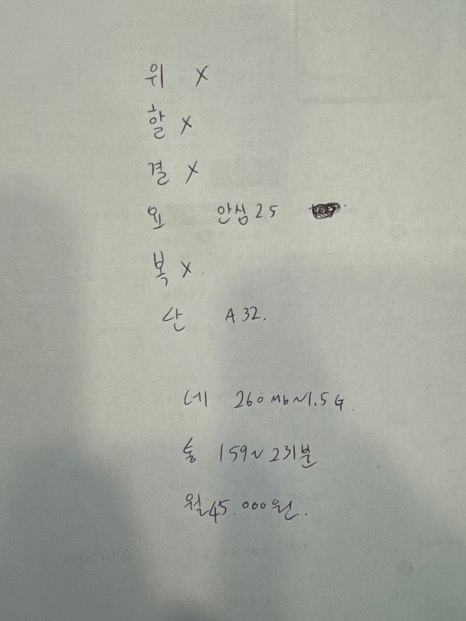 위 X
할 X
결 X
요 안심 25
복 X.
산 A 32.
데 260 Mb~1.5 G.
통 159~231분
월 45.000원.